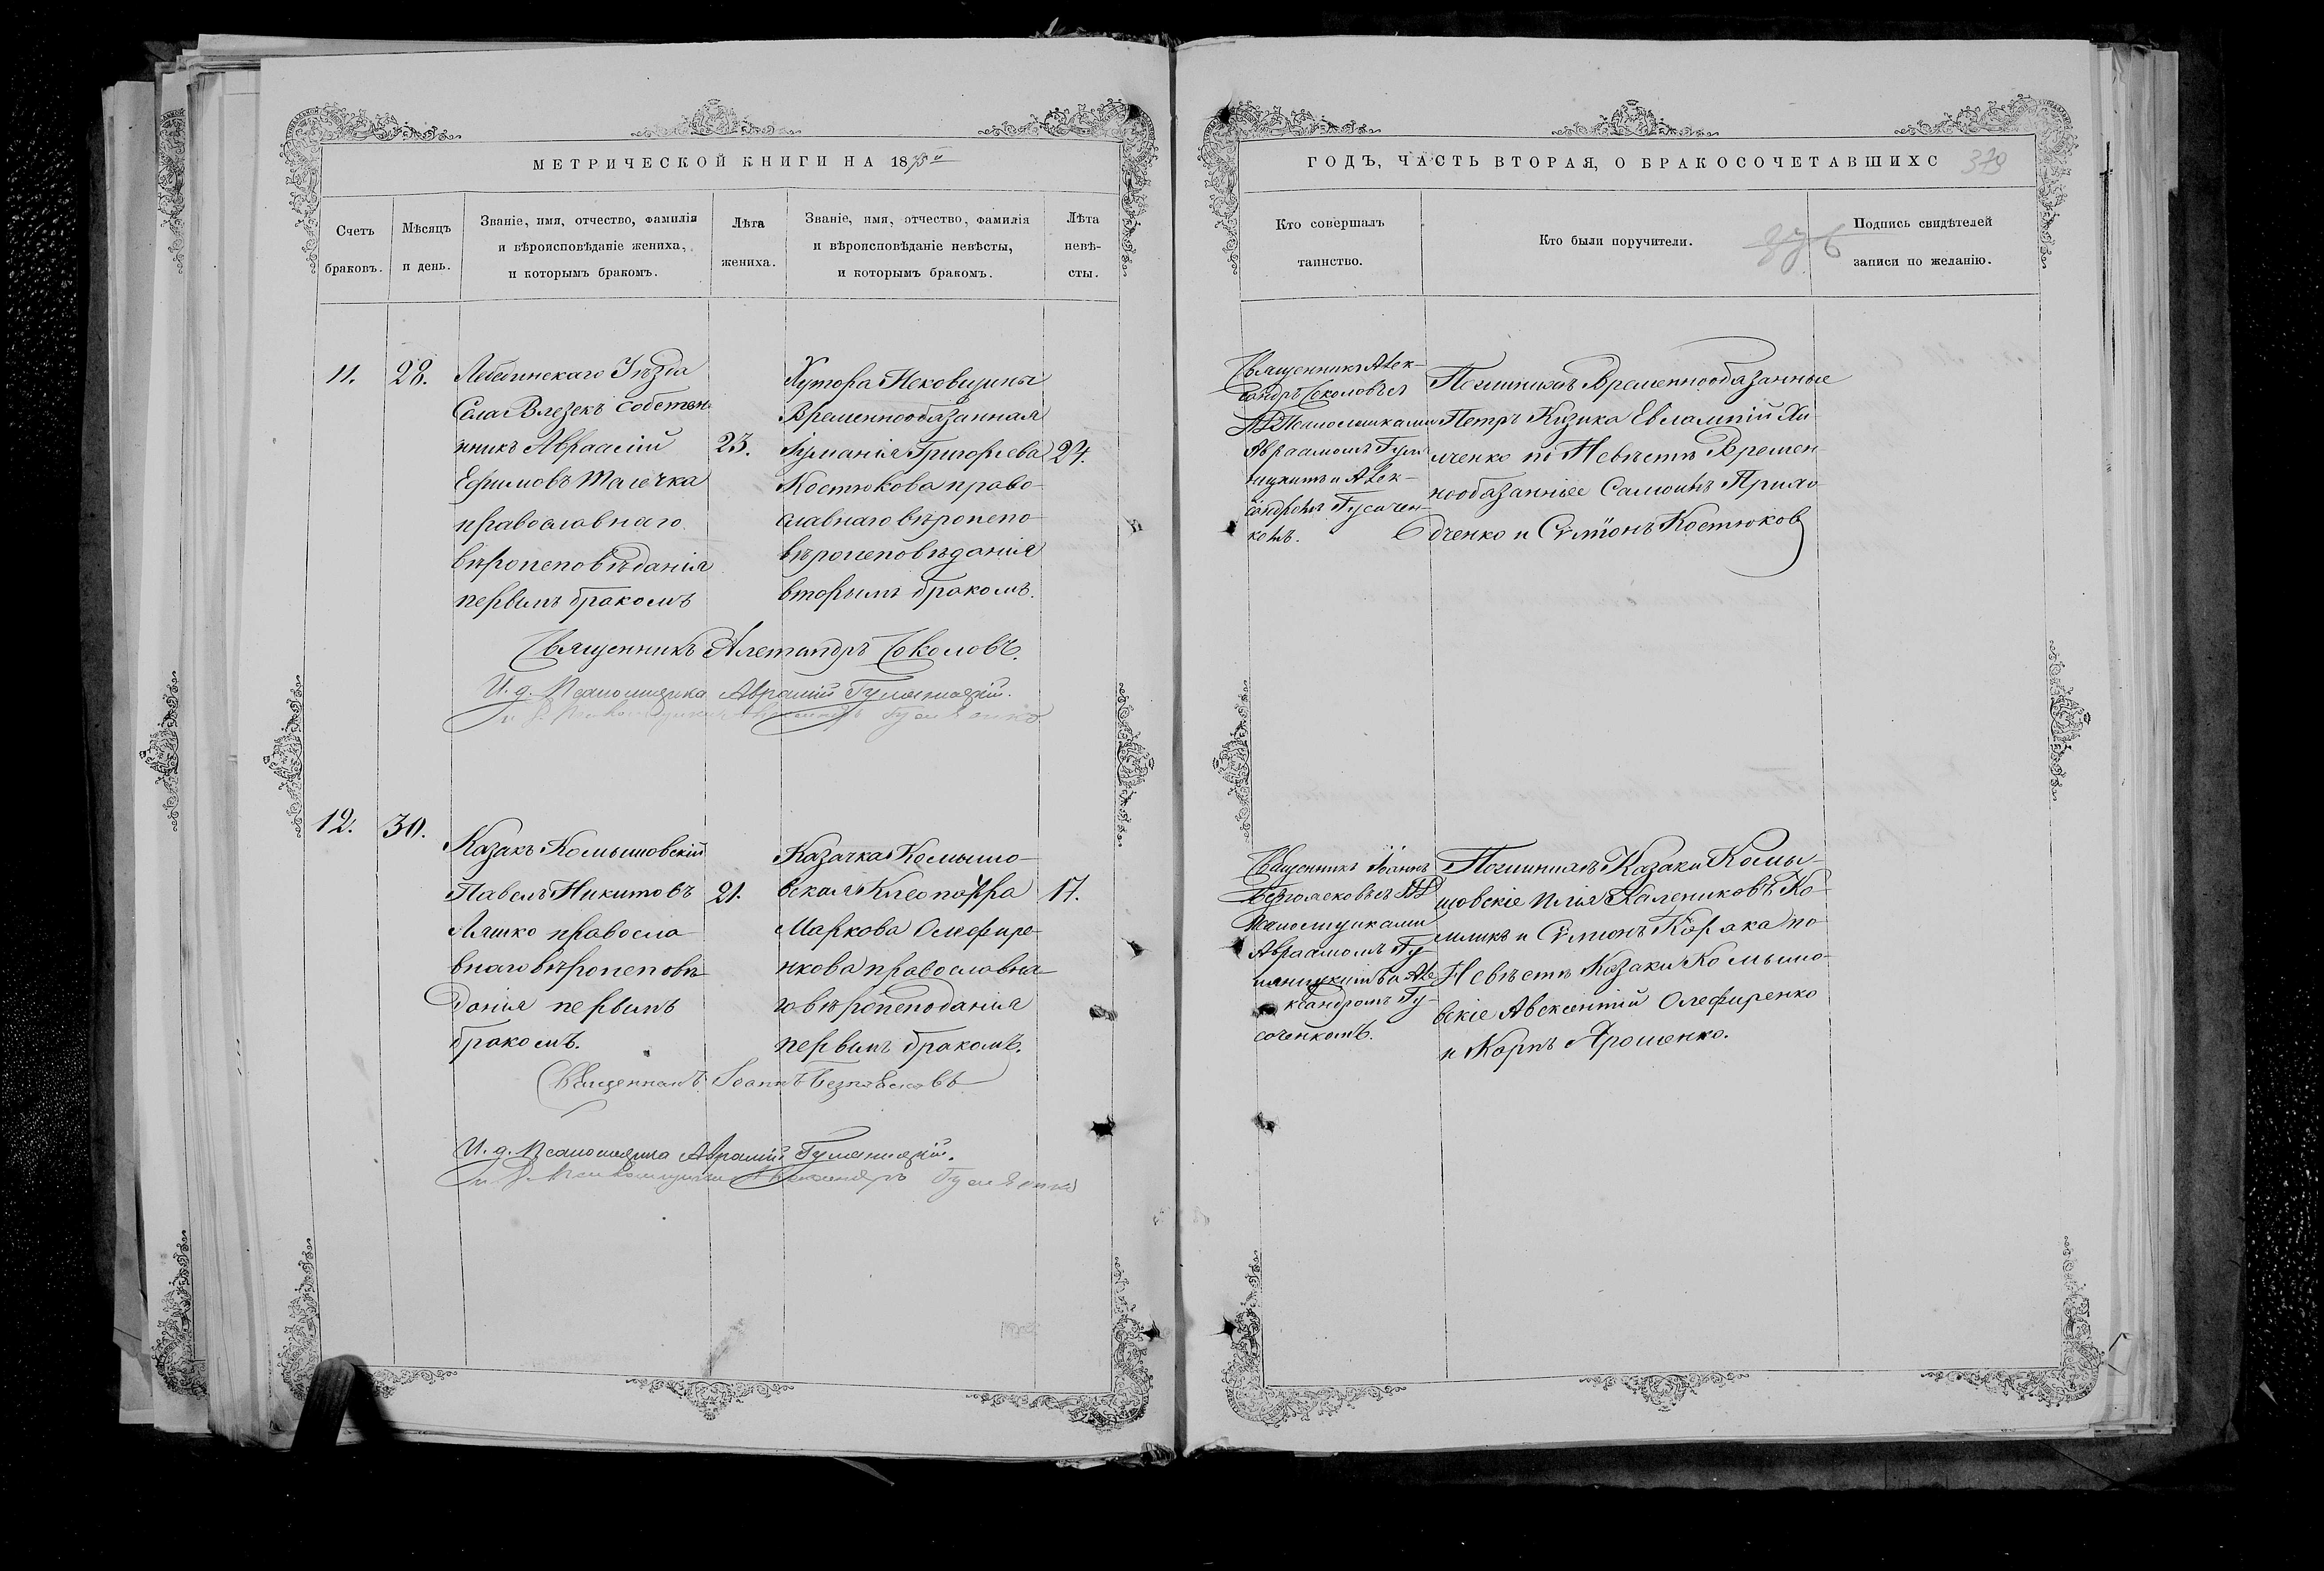 МЕТРИЧЕСКОЙ КНИГИ НА 1875
Счетъ браковъ.
Мѣсяцъ и день.
Званіе, имя, отчество, фамилія и вѣроисповѣданіе жениха, и которымъ бракомъ.
Лѣта жениха.
Званіе, имя, отчество, фамилія и вѣроисповѣданіе невѣсты, и которымъ бракомъ.
Лѣта невѣ-сты.
11.
28.
Лебединскаго Уѣзда
Села собствен
нникъ Авраамій
Ефимовъ
православнаго
вѣроисповѣданія
первымъ бракомъ
23.
Хутора
Временнообязанная
Григорьева
Костюкова право-
славнаго вѣроиспо-
вѣроисповѣданія
вторымъ бракомъ.
24.
Священникъ Александръ Соколовъ.
И. д. Псаломщика Аврамій
12.
30.
Казакъ Комышовскій
Павелъ Никитовъ
Ляшко правосла
внаго вѣроисповѣ
данія первымъ
бракомъ.
21.
Казачка Комышо-
вская Клеопатра
Маркова Олефире-
нкова православна-
го вѣроисподанія
первымъ бракомъ.
17.
Священникъ Іоаннъ
И. д. Псаломщика Аврамій
ГОДЪ, ЧАСТЬ ВТОРАЯ, О БРАКОСОЧЕТАВШИХС
379
Кто совершалъ таинство.
Кто были поручители.
Подпись свидѣтелей записи по желанію.
376
Священникъ Алек-
сандръ Соколовъ съ
Псаломщиками
Авраамомъ Гуля
ницкимъ и Алек-
сандромъ Гусачен-
комъ.
По женихѣ Временнообязанные
Петръ Кизика Евлампій Хи-
мченко по Невѣстѣ Времен-
нообязанные Самоилъ Прихо
дченко и Сѵмеонъ Костюков
Священникъ Іоаннъ
Псаломщиками
Авраамомъ Гу
ляницкимъ и Але
ксандромъ Гу-
саченкомъ.
По женихѣ Казаки Комы-
шовскіе Илія Калениковъ Ко-
мликъ и Сѵмеонъ Корака по
Невѣстѣ Казаки Комышо-
вскіе Авксентій Олефиренко
и Карпъ Ярошенко.